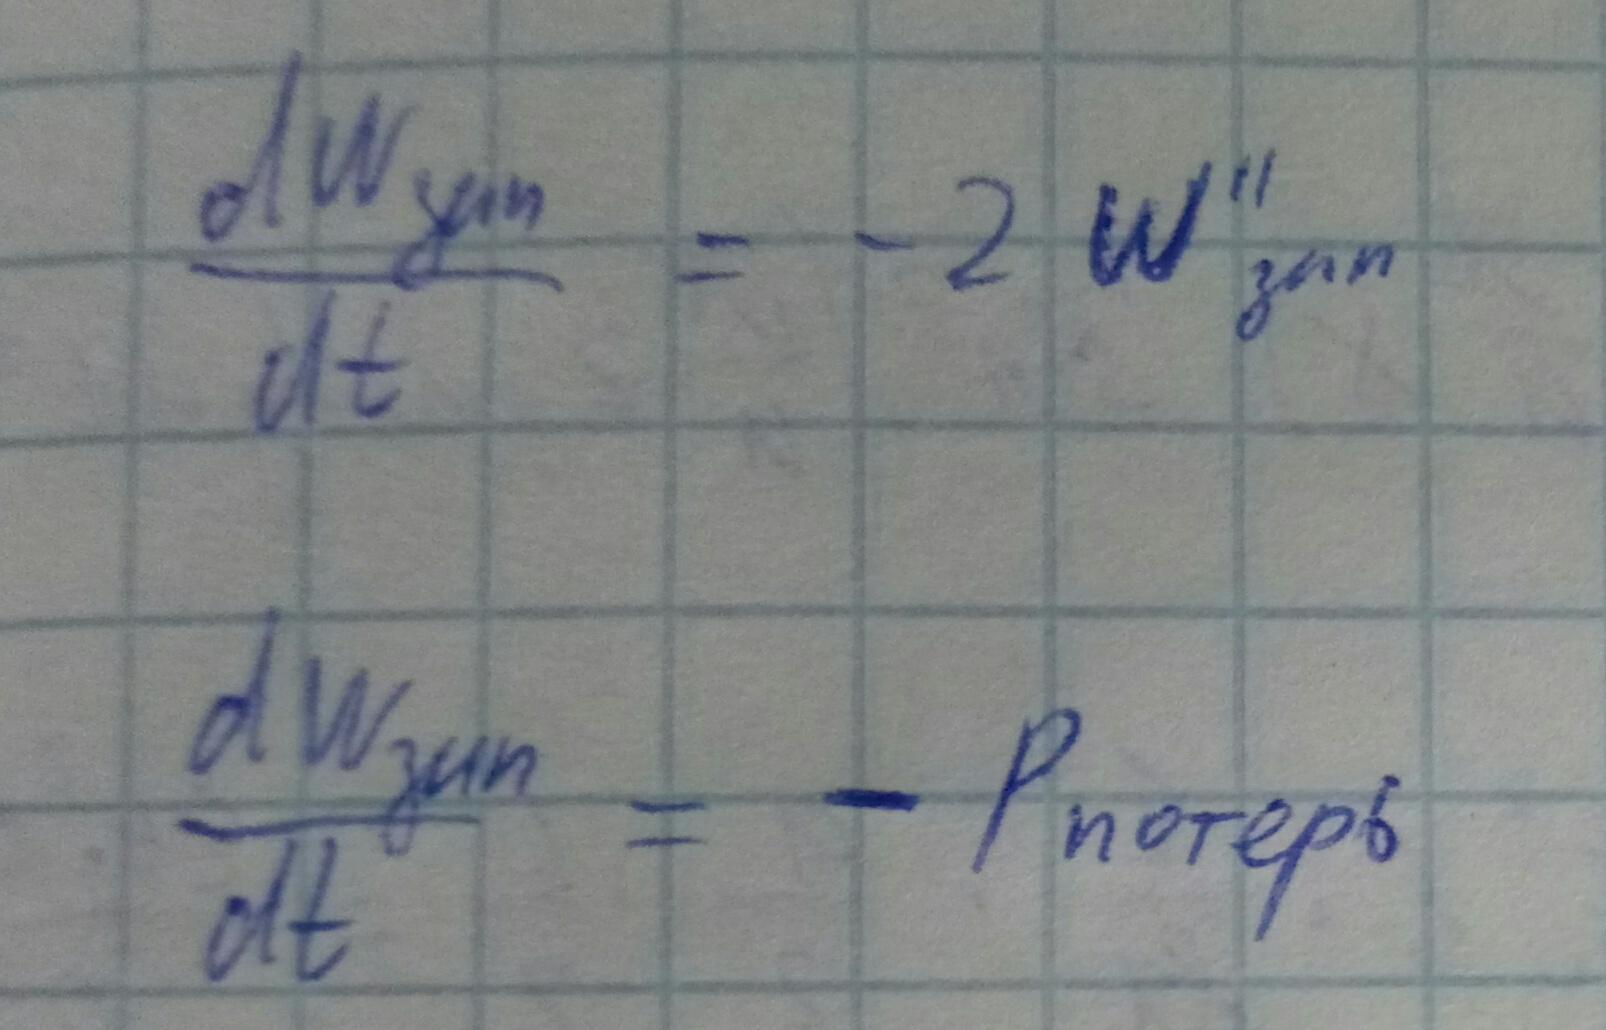 dW зап / dt = - 2 W'' зап
dW зап / dt = - P потерь